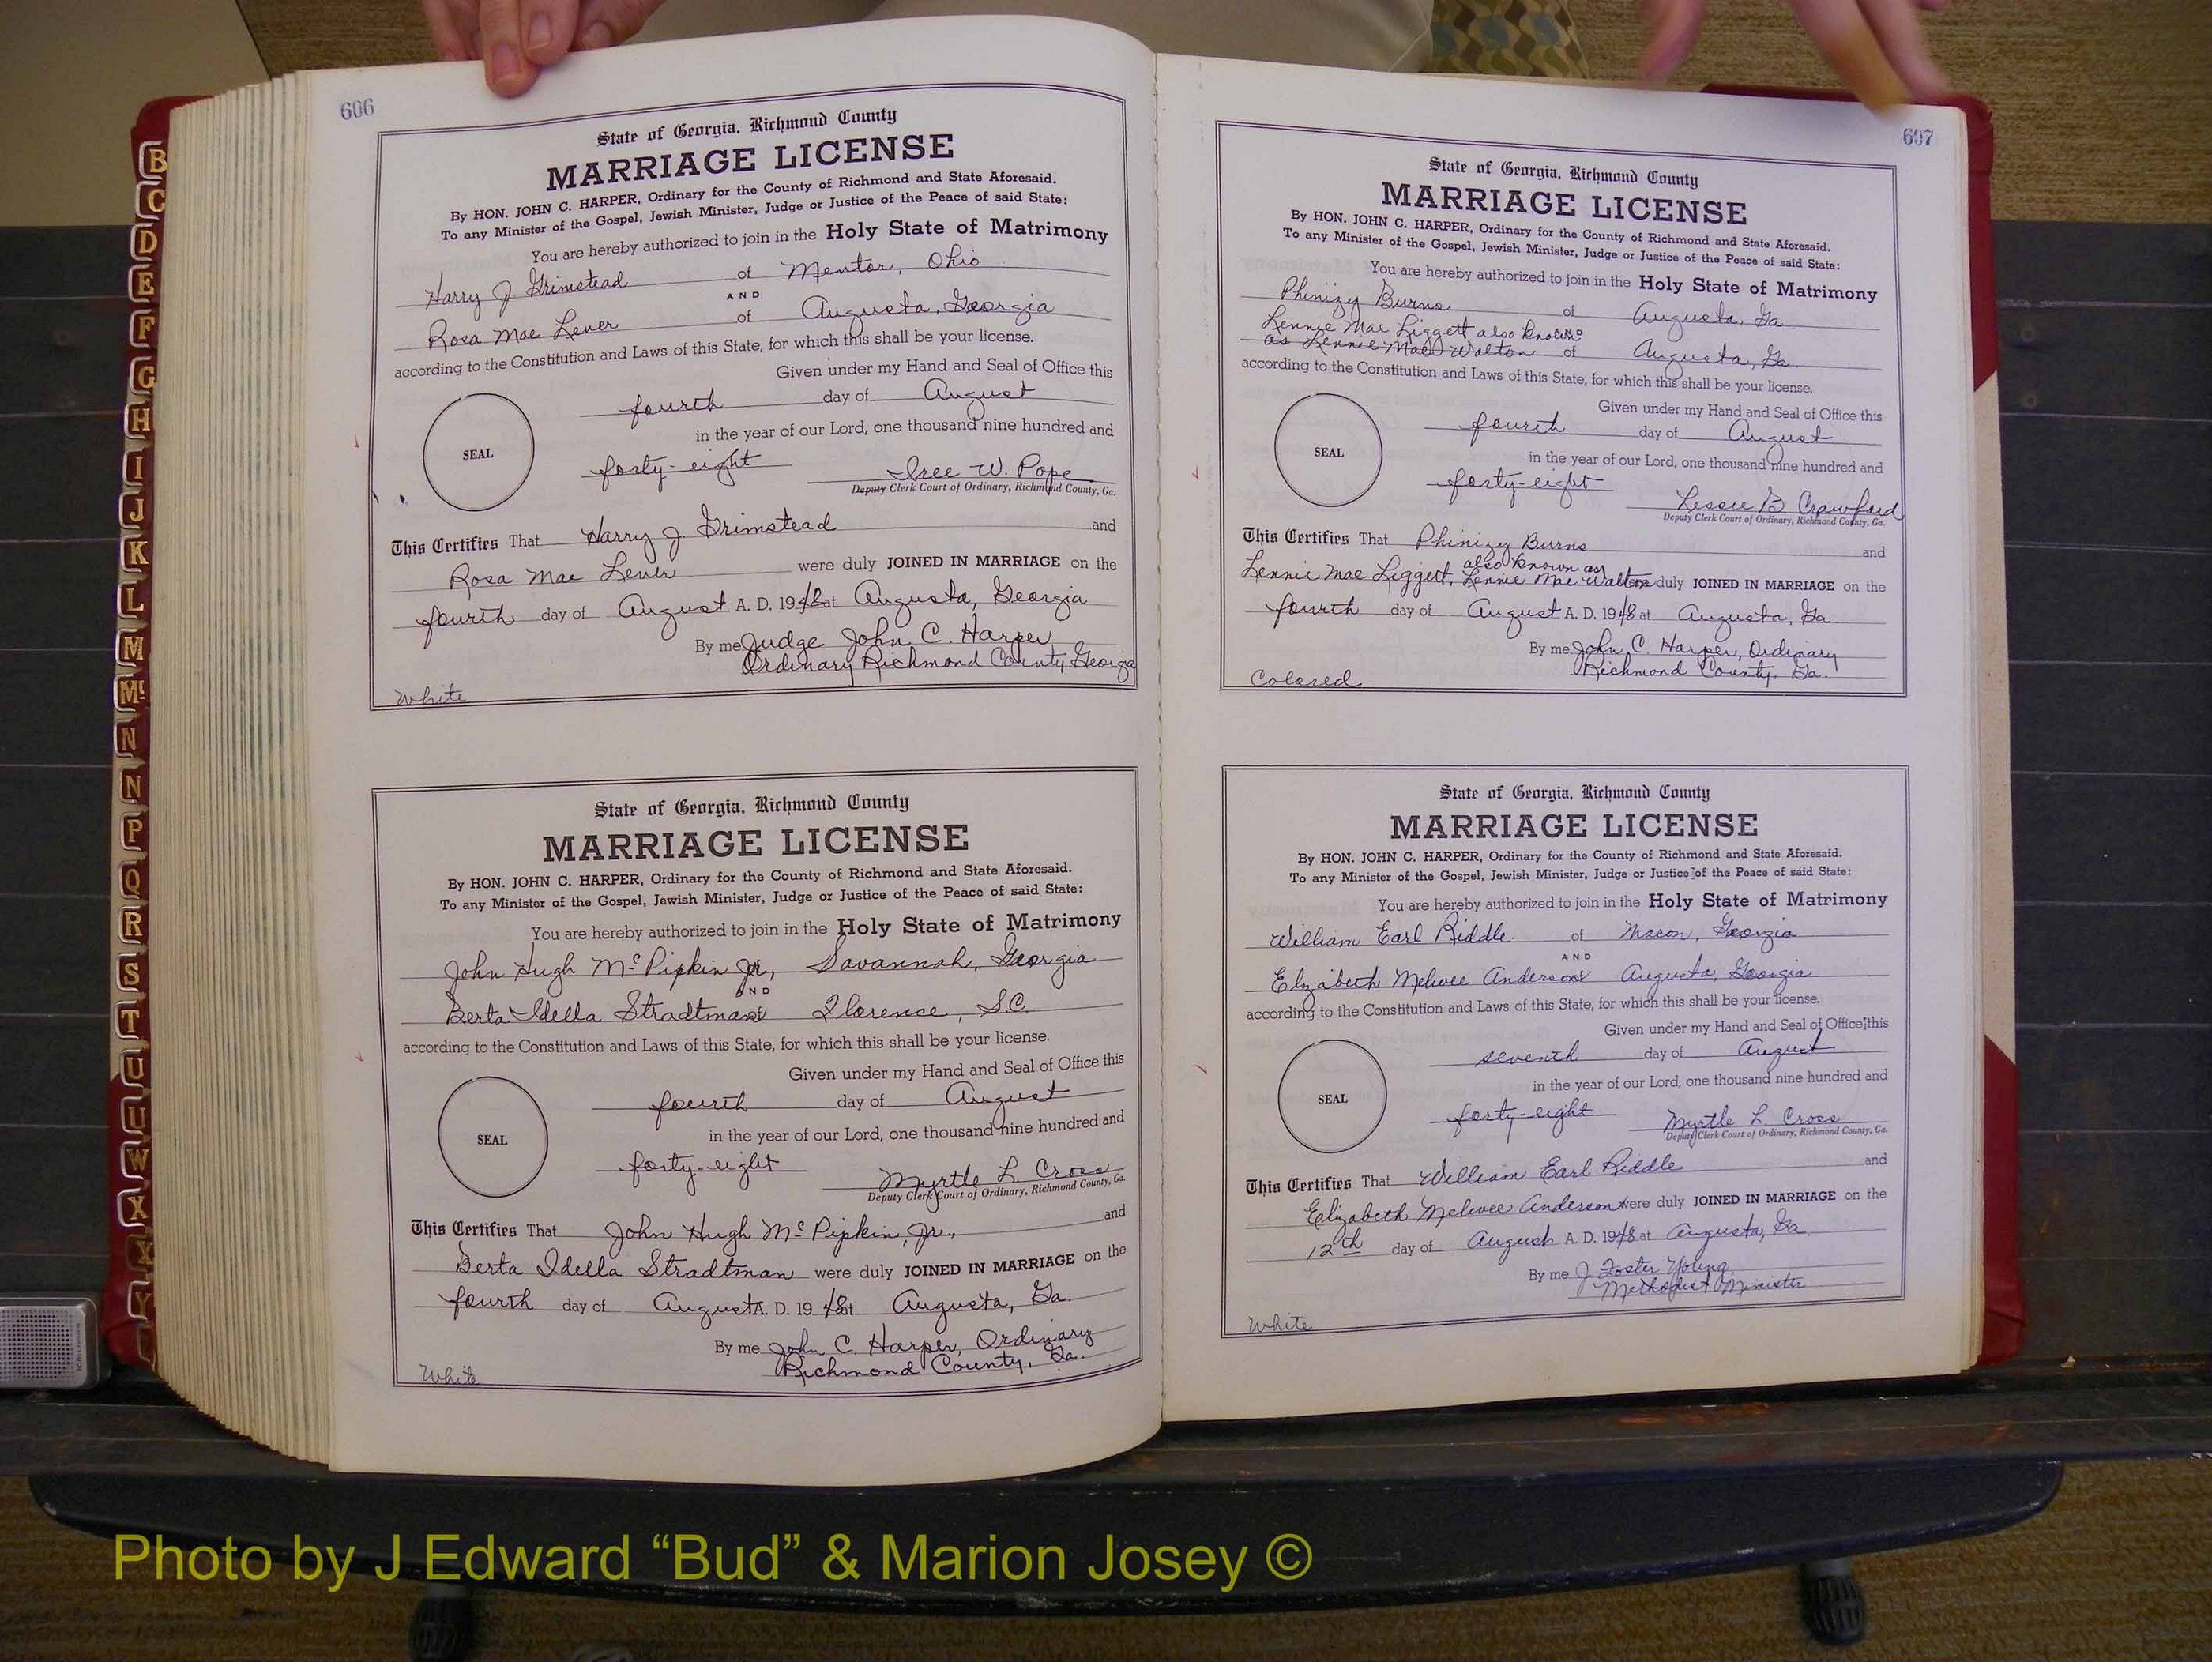 B
C
D
E
F
G
H
I
J
K
L
M
Mc
N
N
P
Q
R
S
T
U
U
W
X
X
Y
606
State of Georgia, Richmond County
MARRIAGE LICENSE
By HON. JOHN C. HARPER, Ordinary for the County of Richmond and State Aforesaid.
To any Minister of the Gospel, Jewish Minister, Judge or Justice of the Peace of said State:
You are hereby authorized to join in the Holy State of Matrimony
Harry J Grimstead of Mentor, Ohio
AND
Rosa Mae Lever of Augusta, Georgia
according to the Constitution and Laws of this State, for which this shall be your license.
Given under my Hand and Seal of Office this
fourth day of August
in the year of our Lord, one thousand nine hundred and
SEAL
forty-eight Iree W. Pope
Deputy Clerk Court of Ordinary, Richmond County, Ga.
This Certifies That Harry J. Grimstead and
Rosa Mae Lever were duly JOINED IN MARRIAGE on the
fourth day of August A. D. 1948 at Augusta, Georgia
By me Judge John C. Harper
Ordinary Richmond County, Georgia
White
State of Georgia, Richmond County
MARRIAGE LICENSE
By HON. JOHN C. HARPER, Ordinary for the County of Richmond and State Aforesaid.
To any Minister of the Gospel, Jewish Minister, Judge or Justice of the Peace of said State:
You are hereby authorized to join in the Holy State of Matrimony
John Hugh McPipkin Jr., of Savannah, Georgia
AND
Berta Idella Stradtman of Florence, S.C.
according to the Constitution and Laws of this State, for which this shall be your license.
Given under my Hand and Seal of Office this
fourth day of August
in the year of our Lord, one thousand nine hundred and
SEAL
forty-eight Myrtle L. Cross
Deputy Clerk Court of Ordinary, Richmond County, Ga.
This Certifies That John Hugh McPipkin, Jr., and
Berta Idella Stradtman were duly JOINED IN MARRIAGE on the
fourth day of August A. D. 1948 at Augusta, Ga.
By me John C. Harper, Ordinary
Richmond County, Ga.
White
607
State of Georgia, Richmond County
MARRIAGE LICENSE
By HON. JOHN C. HARPER, Ordinary for the County of Richmond and State Aforesaid.
To any Minister of the Gospel, Jewish Minister, Judge or Justice of the Peace of said State:
You are hereby authorized to join in the Holy State of Matrimony
Phinizy Burns of Augusta, Ga
Lennie Mae Liggett also known AND
as Lennie Mae Walton of Augusta, Ga.
according to the Constitution and Laws of this State, for which this shall be your license.
Given under my Hand and Seal of Office this
fourth day of August
in the year of our Lord, one thousand nine hundred and
SEAL
forty-eight Lessie B Crawford
Deputy Clerk Court of Ordinary, Richmond County, Ga.
This Certifies That Phinizy Burns and
also known as
Lennie Mae Liggett, Lennie Mae Walton were duly JOINED IN MARRIAGE on the
fourth day of August A. D. 1948 at Augusta, Ga.
By me John C. Harper, Ordinary
Richmond County, Ga.
Colored
State of Georgia, Richmond County
MARRIAGE LICENSE
By HON. JOHN C. HARPER, Ordinary for the County of Richmond and State Aforesaid.
To any Minister of the Gospel, Jewish Minister, Judge or Justice of the Peace of said State:
You are hereby authorized to join in the Holy State of Matrimony
William Earl Riddle of Macon, Georgia
AND
Elizabeth Melwee Anderson of Augusta, Georgia
according to the Constitution and Laws of this State, for which this shall be your license.
Given under my Hand and Seal of Office this
seventh day of August
in the year of our Lord, one thousand nine hundred and
SEAL
forty-eight Myrtle L. Cross
Deputy Clerk Court of Ordinary, Richmond County, Ga.
This Certifies That William Earl Riddle and
Elizabeth Melwee Anderson were duly JOINED IN MARRIAGE on the
12th day of August A. D. 1948 at Augusta, Ga.
By me J. Foster Young
Methodist Minister
White
Photo by J Edward “Bud” & Marion Josey ©